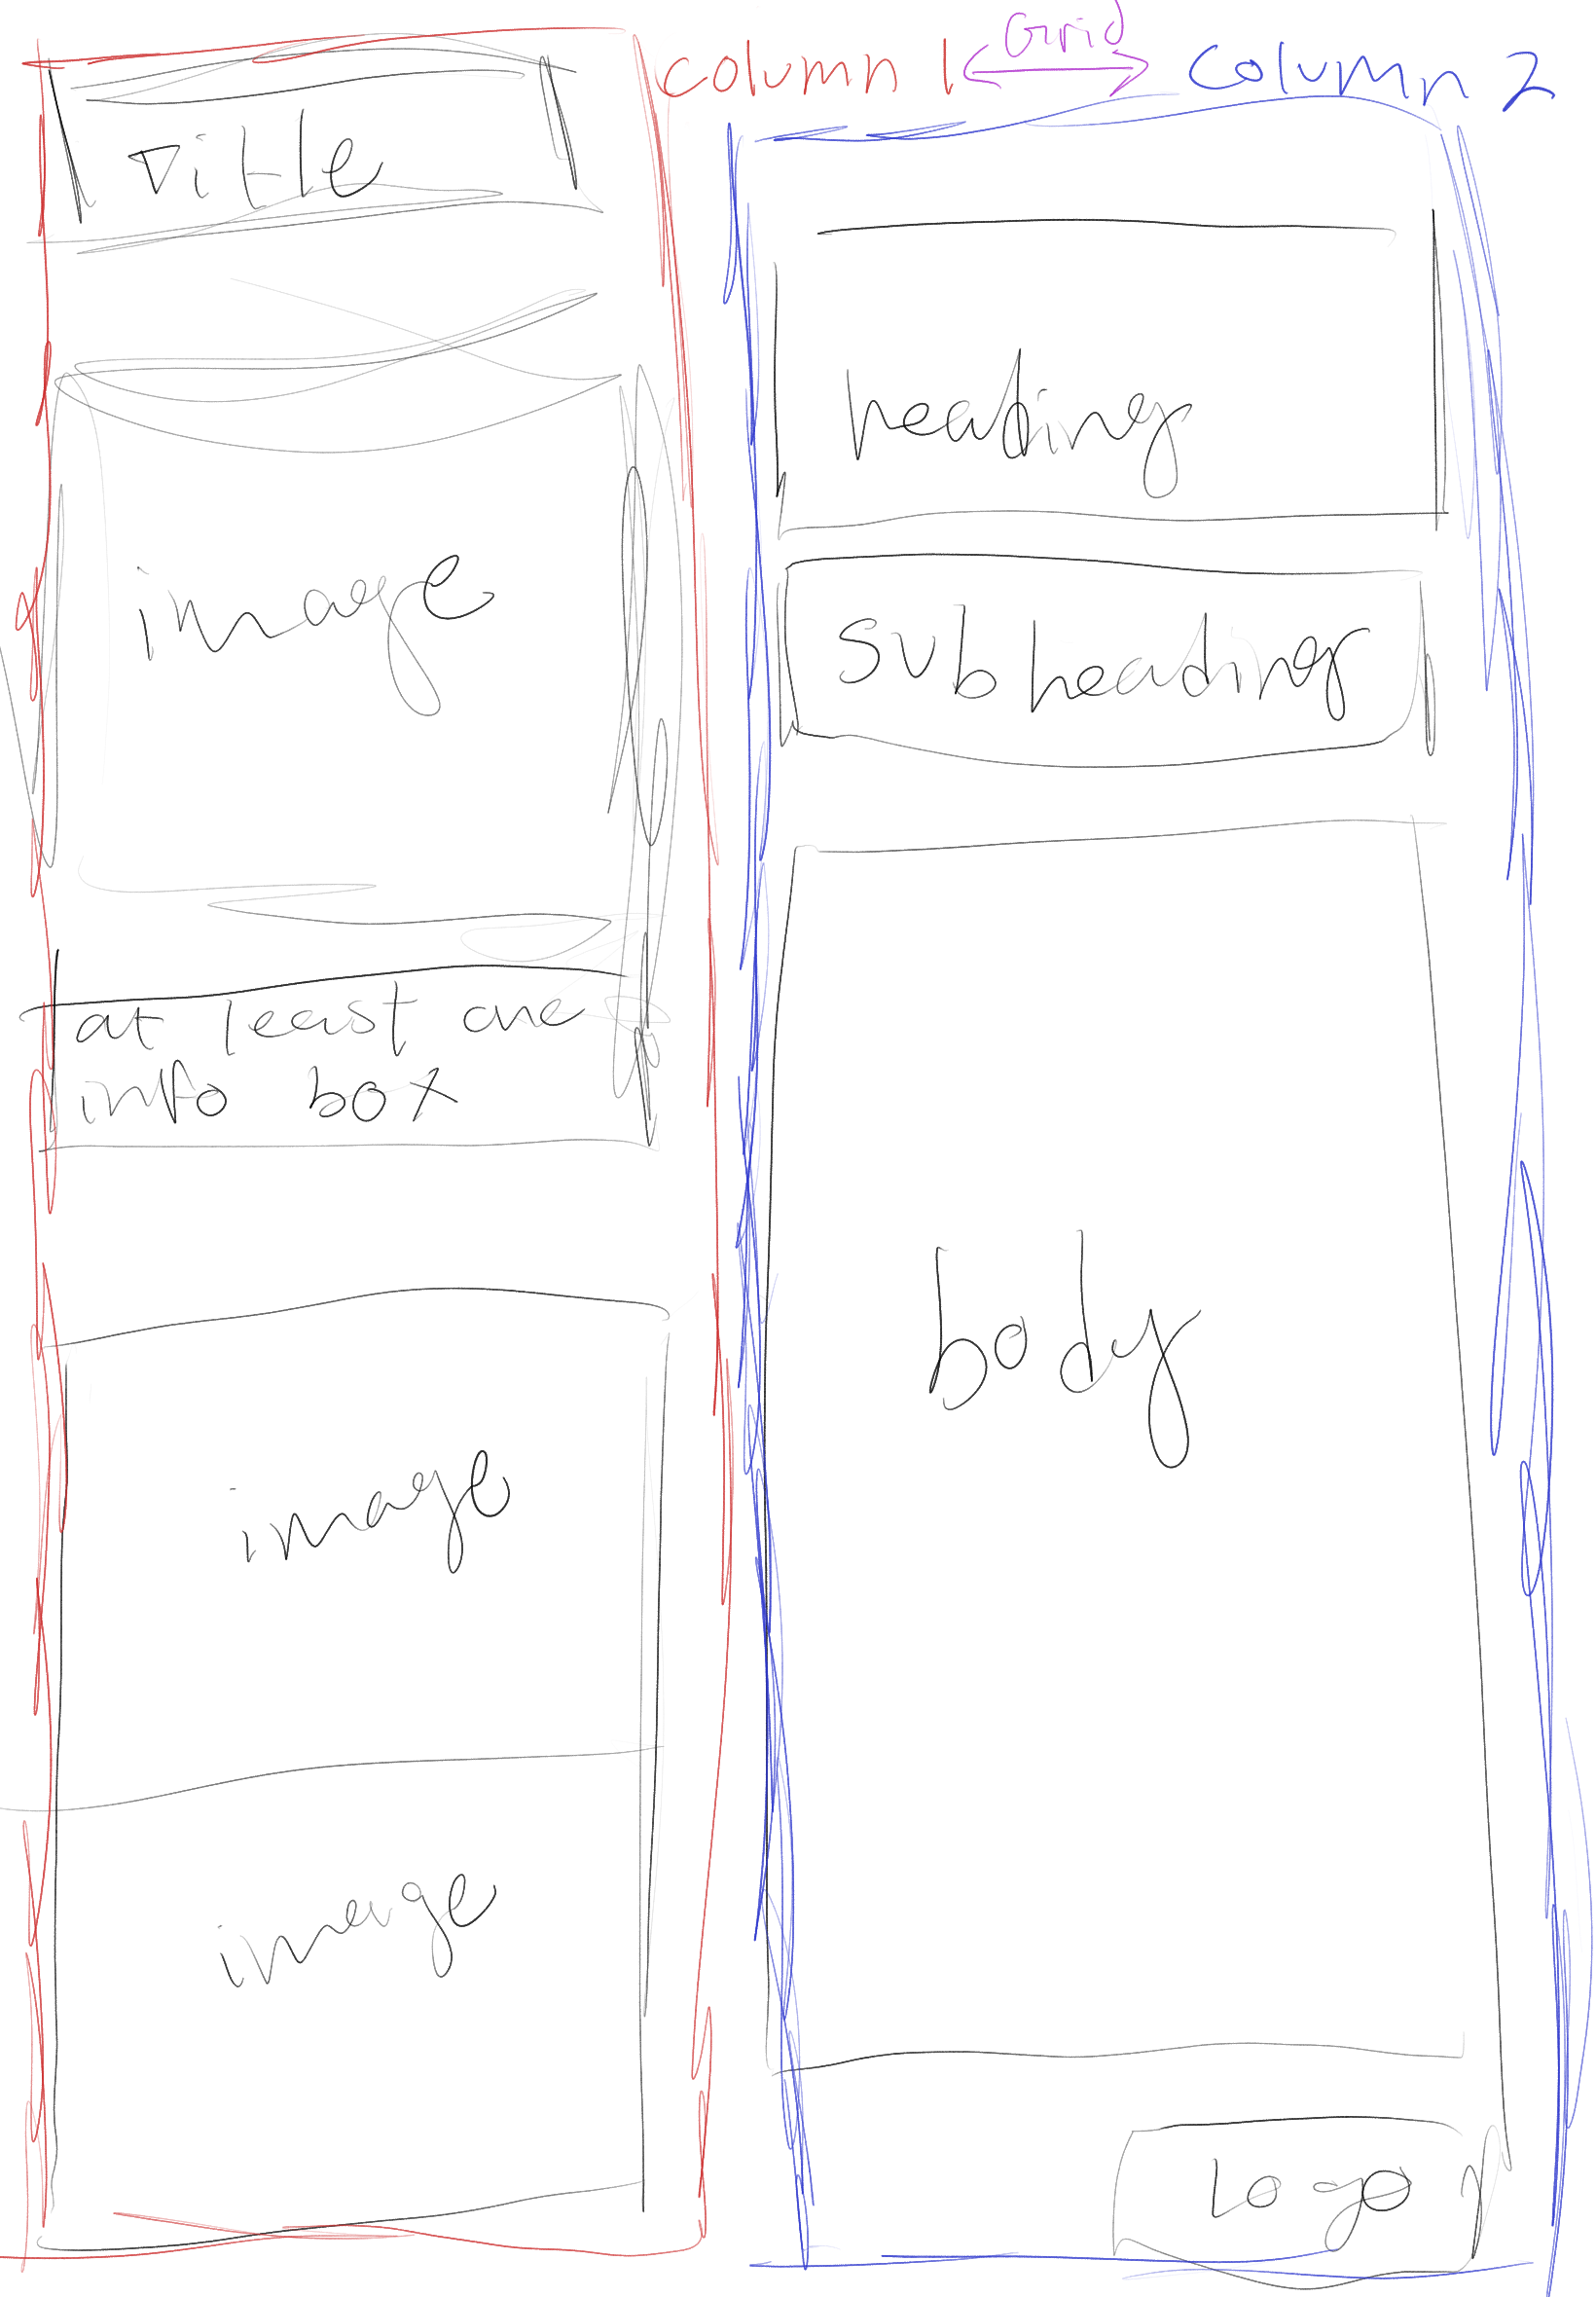 column 1
Grid
column 2
Title
image
at least one
info box
image
image
heading
subheading
body
Logo